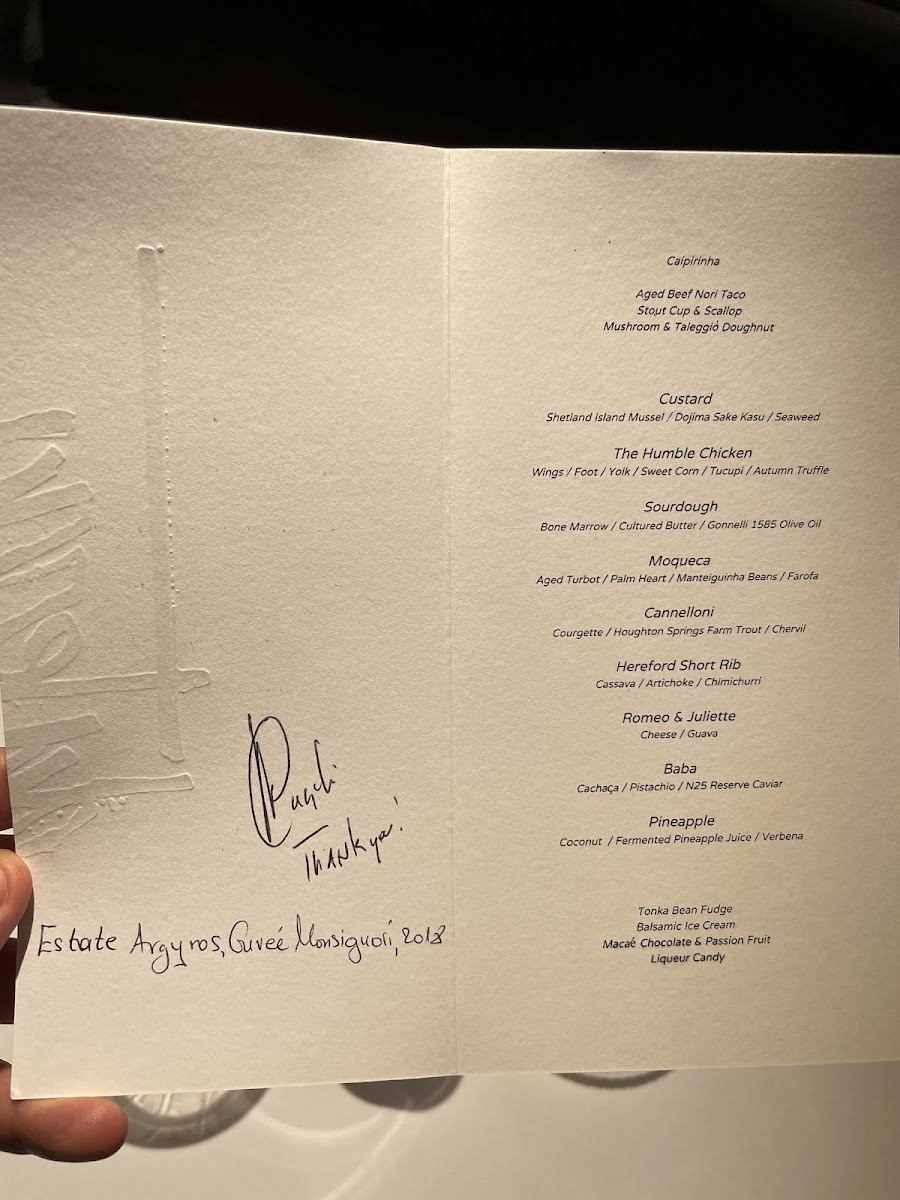 Thank you!
Estate Argyros, Cuveé Monsignori, 2018
Caipirinha
Aged Beef Nori Taco
Stout Cup & Scallop
Mushroom & Taleggio Doughnut
Custard
Shetland Island Mussel / Dojima Sake Kasu / Seaweed
The Humble Chicken
Wings / Foot / Yolk / Sweet Corn / Tucupi / Autumn Truffle
Sourdough
Bone Marrow / Cultured Butter / Gonnelli 1585 Olive Oil
Moqueca
Aged Turbot / Palm Heart / Manteiguinha Beans / Farofa
Cannelloni
Courgette / Houghton Springs Farm Trout / Chervil
Hereford Short Rib
Cassava / Artichoke / Chimichurri
Romeo & Juliette
Cheese / Guava
Baba
Cachaça / Pistachio / N25 Reserve Caviar
Pineapple
Coconut / Fermented Pineapple Juice / Verbena
Tonka Bean Fudge
Balsamic Ice Cream
Macaé Chocolate & Passion Fruit
Liqueur Candy